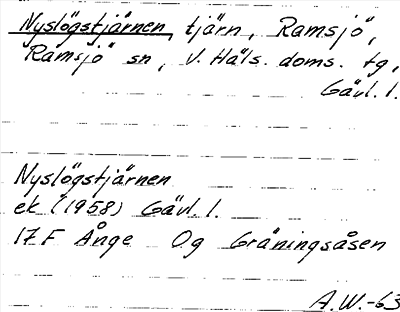 Nyslögstjärnen, tjärn, Ramsjö,
Ramsjö sn, V. Häls. doms. tg,
Gävl. l.
Nyslögstjärnen
ek (1958) Gävl. l.
17F Ånge Og Gräningsåsen
A.W.-63